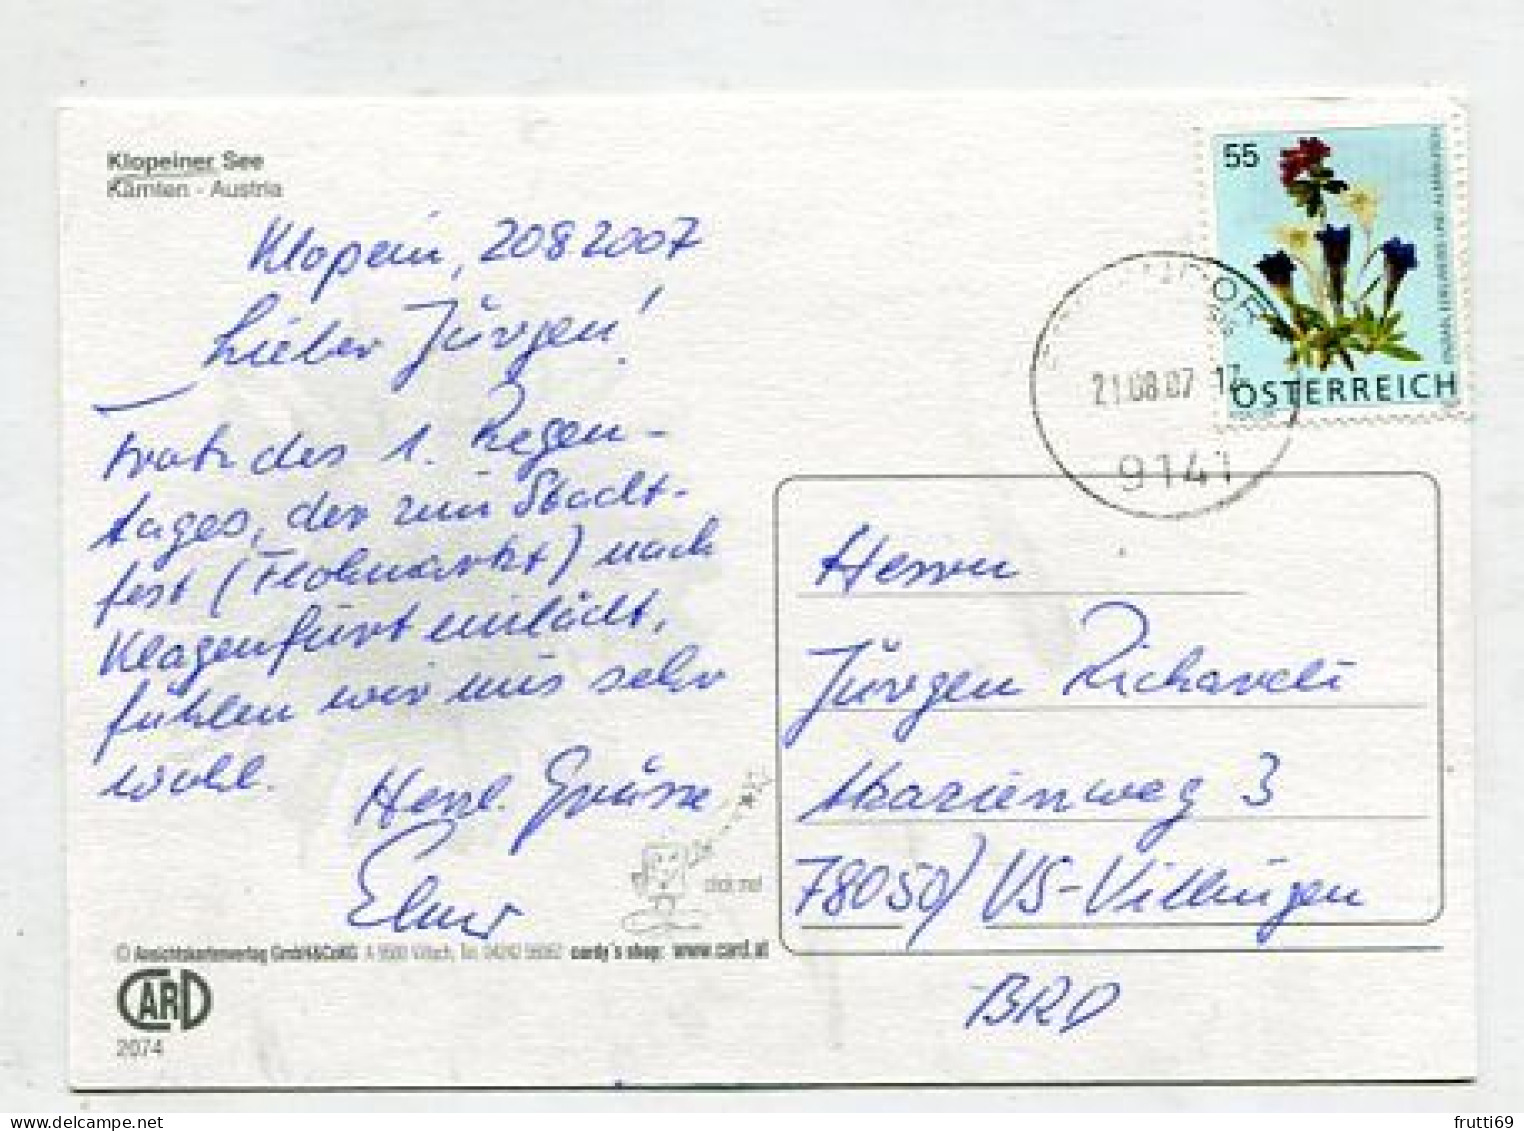 Klopeiner See
Kärnten - Austria
Klopein, 20 8 2007
Lieber Jürgen!
Trotz des 1. Regen-
tages, der zum Stadt-
fest (Flohmarkt) nach
Klagenfurt einlädt,
fühlen wir uns sehr
wohl.
Herzl. Grüsse
Elmar
© Ansichtskartenverlag GmbH&CoKG A 9500 Villach, Tel. 04242 cardy's shop: www.card.at
CARD
2074
55
ENZIAN, EDELWEISS UND ALPENROSE
ÖSTERREICH
21.08.07 17
9141
Herrn
Jürgen
Marienweg 3
78050/ VS-Villingen
BRD
frutti69